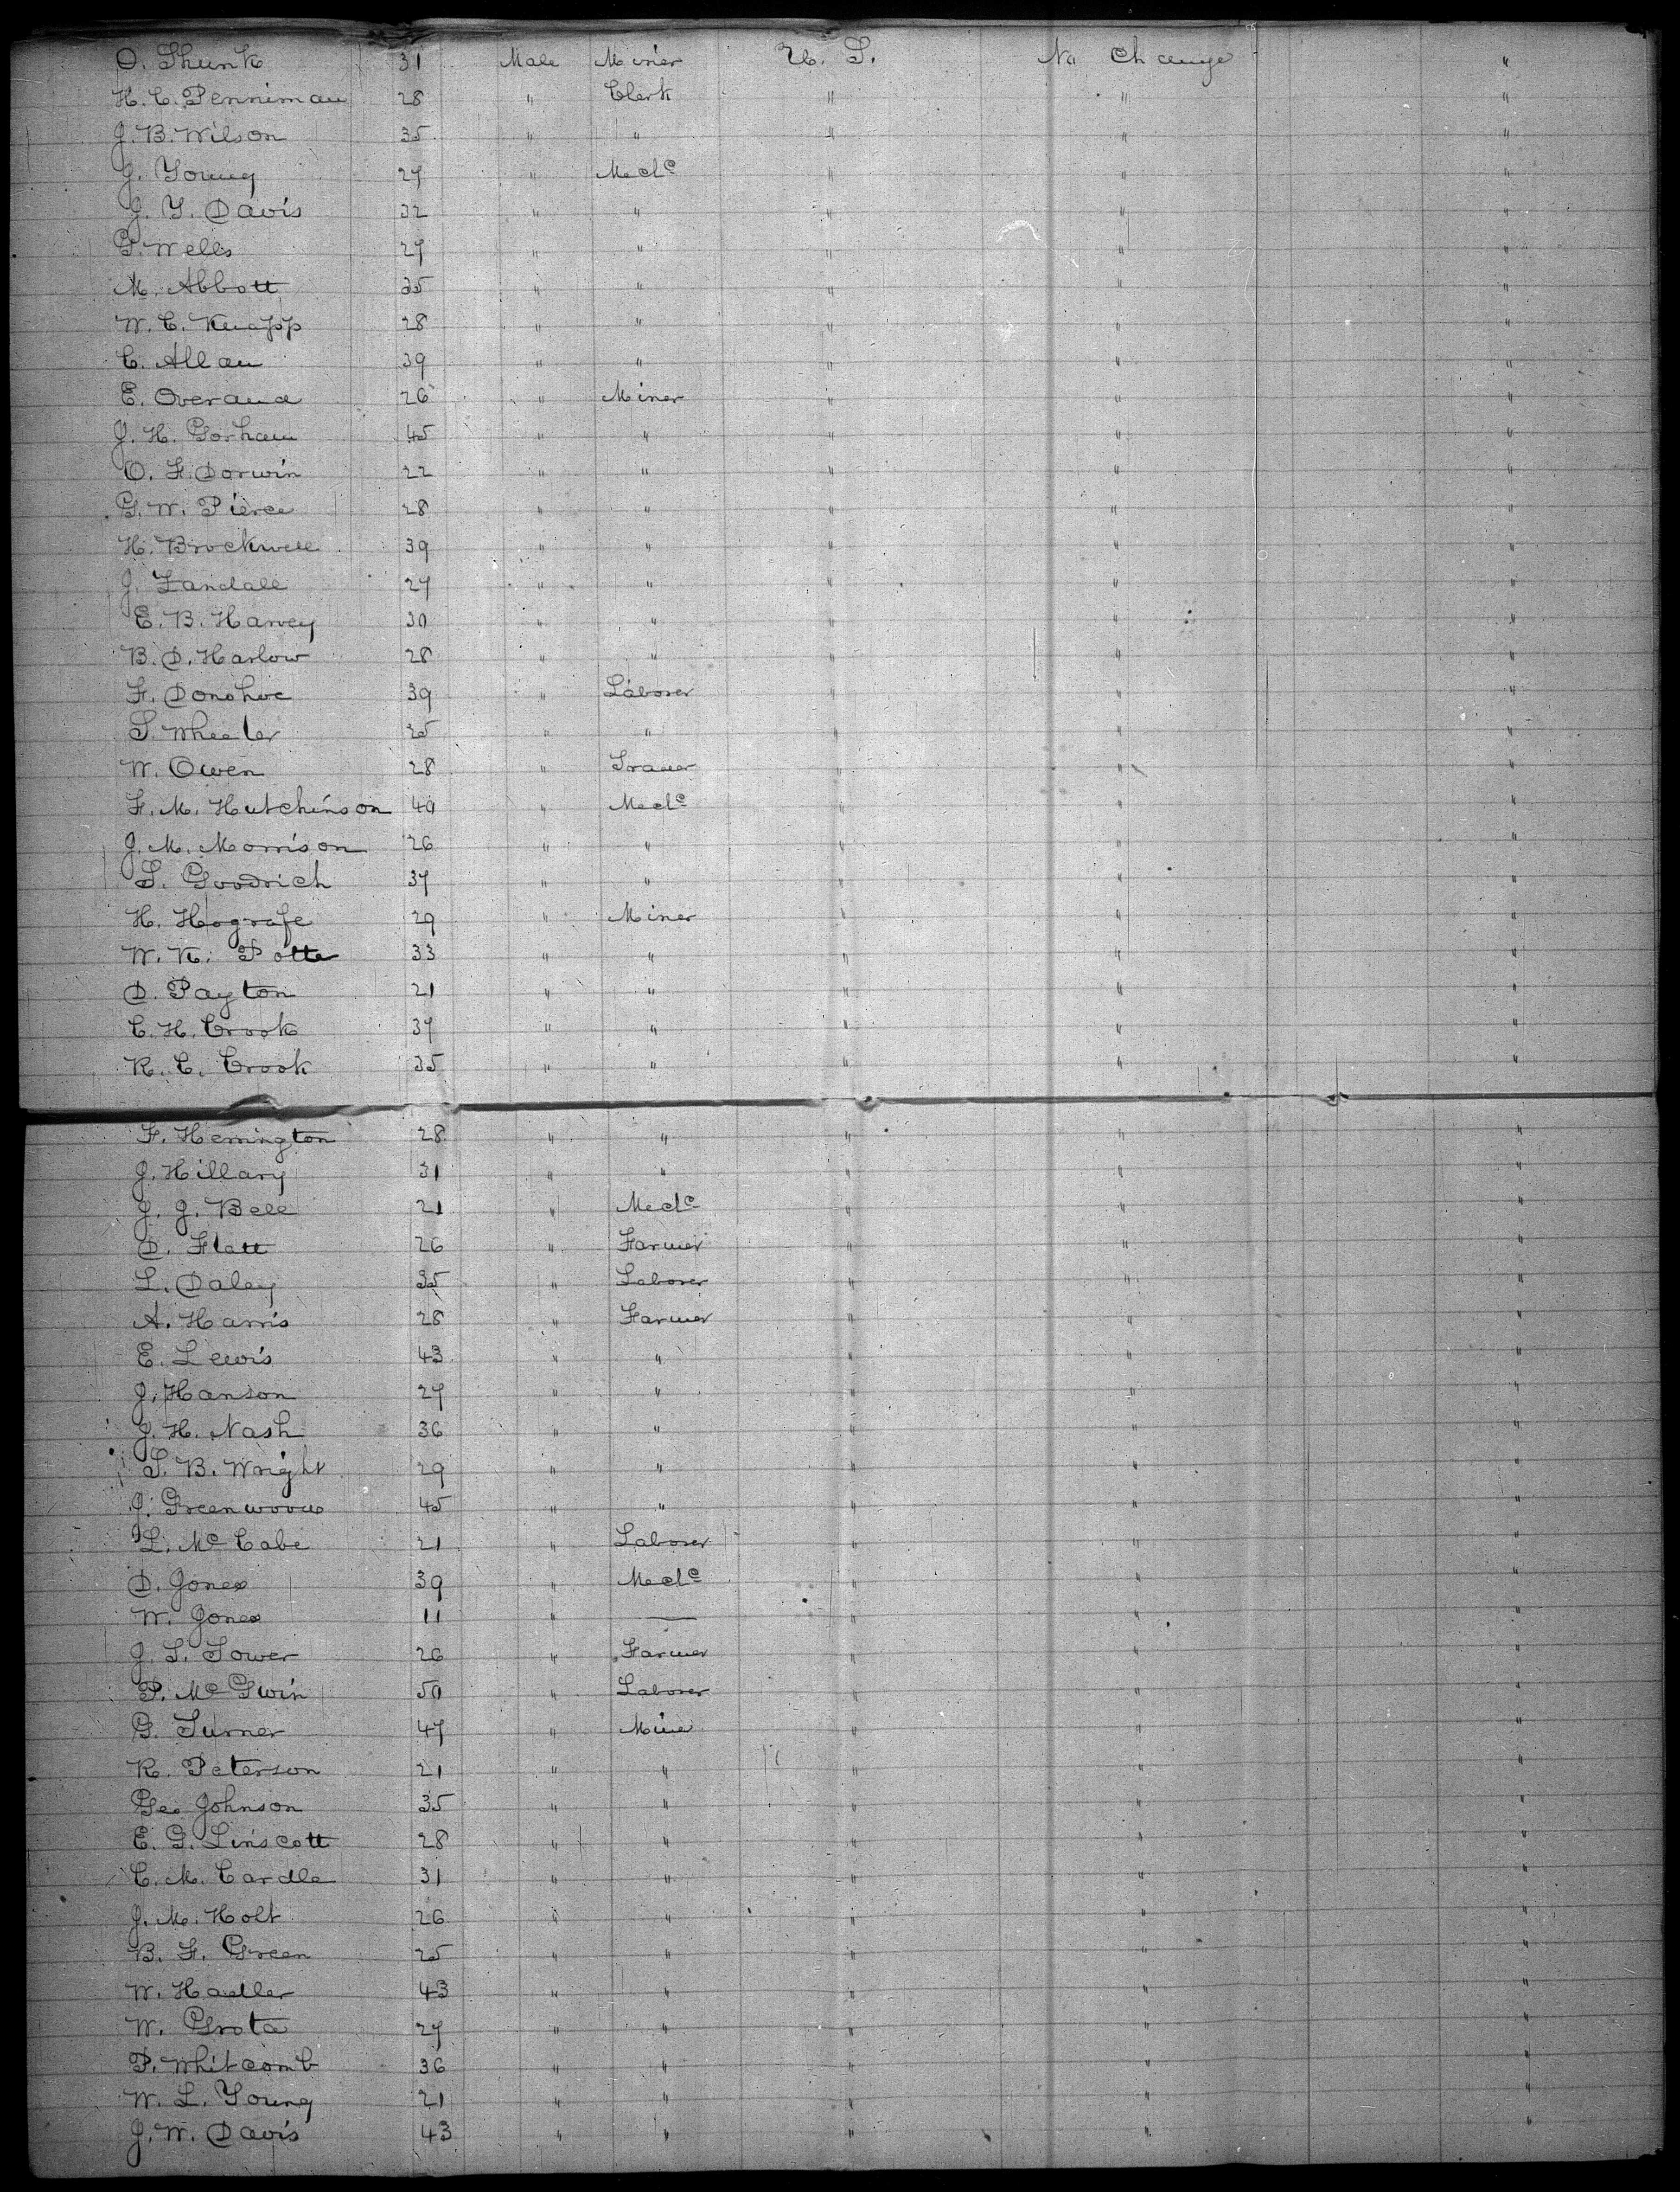 O. Shunk 31 Male Miner U. S. No Change "
H. C. Penniman 28 " Clerk " " "
J. B. Wilson 35 " " " " "
J. Young 27 " Mech<sup>c</sup> " " "
J. Y. Davis 32 " " " " "
G. Wells 27 " " " " "
M. Abbott 35 " " " " "
W. C. Knapp 28 " " " " "
C. Allan 39 " " " " "
E. Overand 26 " Miner " " "
J. H. Gorham 45 " " " " "
O. F. Dorwin 22 " " " " "
G. W. Pierce 28 " " " " "
H. Brockwell 39 " " " " "
J. Landall 27 " " " " "
E. B. Harvey 30 " " " " "
B. D. Harlow 28 " " " " "
F. Donohoe 39 " Laborer " " "
S. Wheeler 25 " " " " "
W. Owen 28 " " " "
F. M. Hutchinson 40 " Mech<sup>c</sup> " " "
J. M. Morrison 26 " " " " "
S. Goodrich 37 " " " " "
H. Hografe 29 " Miner " " "
W. K. Potter 33 " " " " "
D. Payton 21 " " " " "
C. H. Crook 37 " " " " "
R. C. Crook 35 " " " " "
F. Herrington 28 " " " " "
J. Hillary 31 " " " " "
J. J. Bell 21 " Mech<sup>c</sup> " " "
D. Flatt 26 " Farmer " " "
L. Daley 35 " Laborer " " "
A. Harris 28 " Farmer " " "
E. Lewis 43 " " " " "
J. Hanson 27 " " " " "
J. H. Nash 36 " " " " "
S. B. Wright 29 " " " " "
J. Greenwood 45 " " " " "
L. McCabe 21 " Laborer " " "
D. Jones 39 " Mech<sup>c</sup> " " "
W. Jones 11 " — " " "
J. S. Tower 26 " Farmer " " "
P. McGwin 50 " Laborer " " "
G. Turner 47 " Miner " " "
R. Peterson 21 " " " " "
Geo Johnson 35 " " " " "
E. G. Linscott 28 " " " " "
C. M. Cardle 31 " " " " "
J. M. Holt 26 " " " " "
B. F. Green 25 " " " " "
W. Hadler 43 " " " " "
W. Grota 27 " " " " "
P. Whitcomb 36 " " " " "
W. L. Young 21 " " " " "
J. W. Davis 43 " " " " "